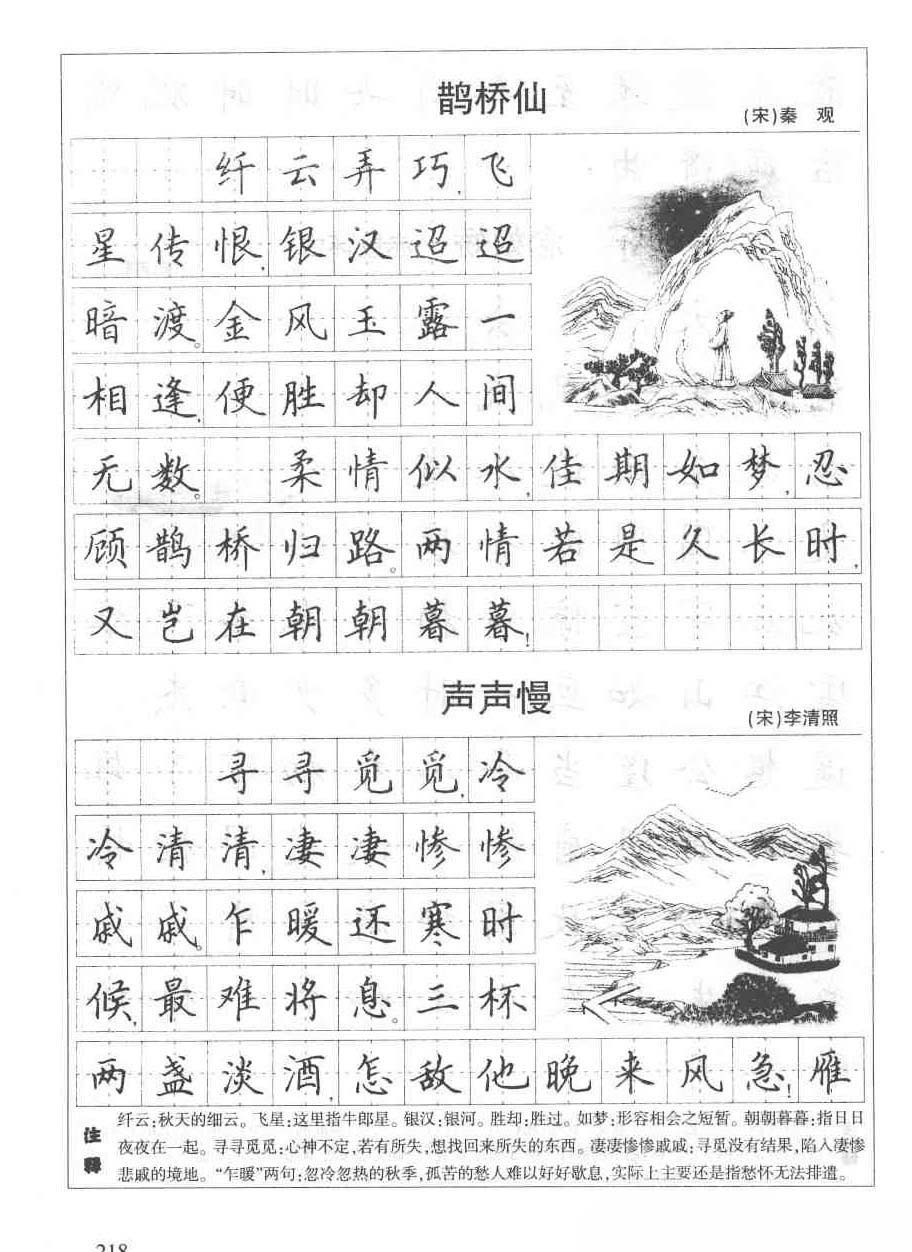 鹊桥仙
(宋)秦 观
纤云弄巧,飞
星传恨,银汉迢迢
暗渡。金风玉露一
相逢,便胜却人间
无数。 柔情似水,佳期如梦,忍
顾鹊桥归路。两情若是久长时,
又岂在朝朝暮暮!
声声慢
(宋)李清照
寻寻觅觅,冷
冷清清,凄凄惨惨
戚戚。乍暖还寒时
候,最难将息。三杯
两盏淡酒,怎敌他晚来风急!雁
注释
纤云:秋天的细云。飞星:这里指牛郎星。银汉:银河。胜却:胜过。如梦:形容相会之短暂。朝朝暮暮:指日日
夜夜在一起。寻寻觅觅:心神不定,若有所失,想找回来所失的东西。凄凄惨惨戚戚:寻觅没有结果,陷入凄惨
悲戚的境地。“乍暖”两句:忽冷忽热的秋季,孤苦的愁人难以好好歇息,实际上主要还是指愁怀无法排遣。
218